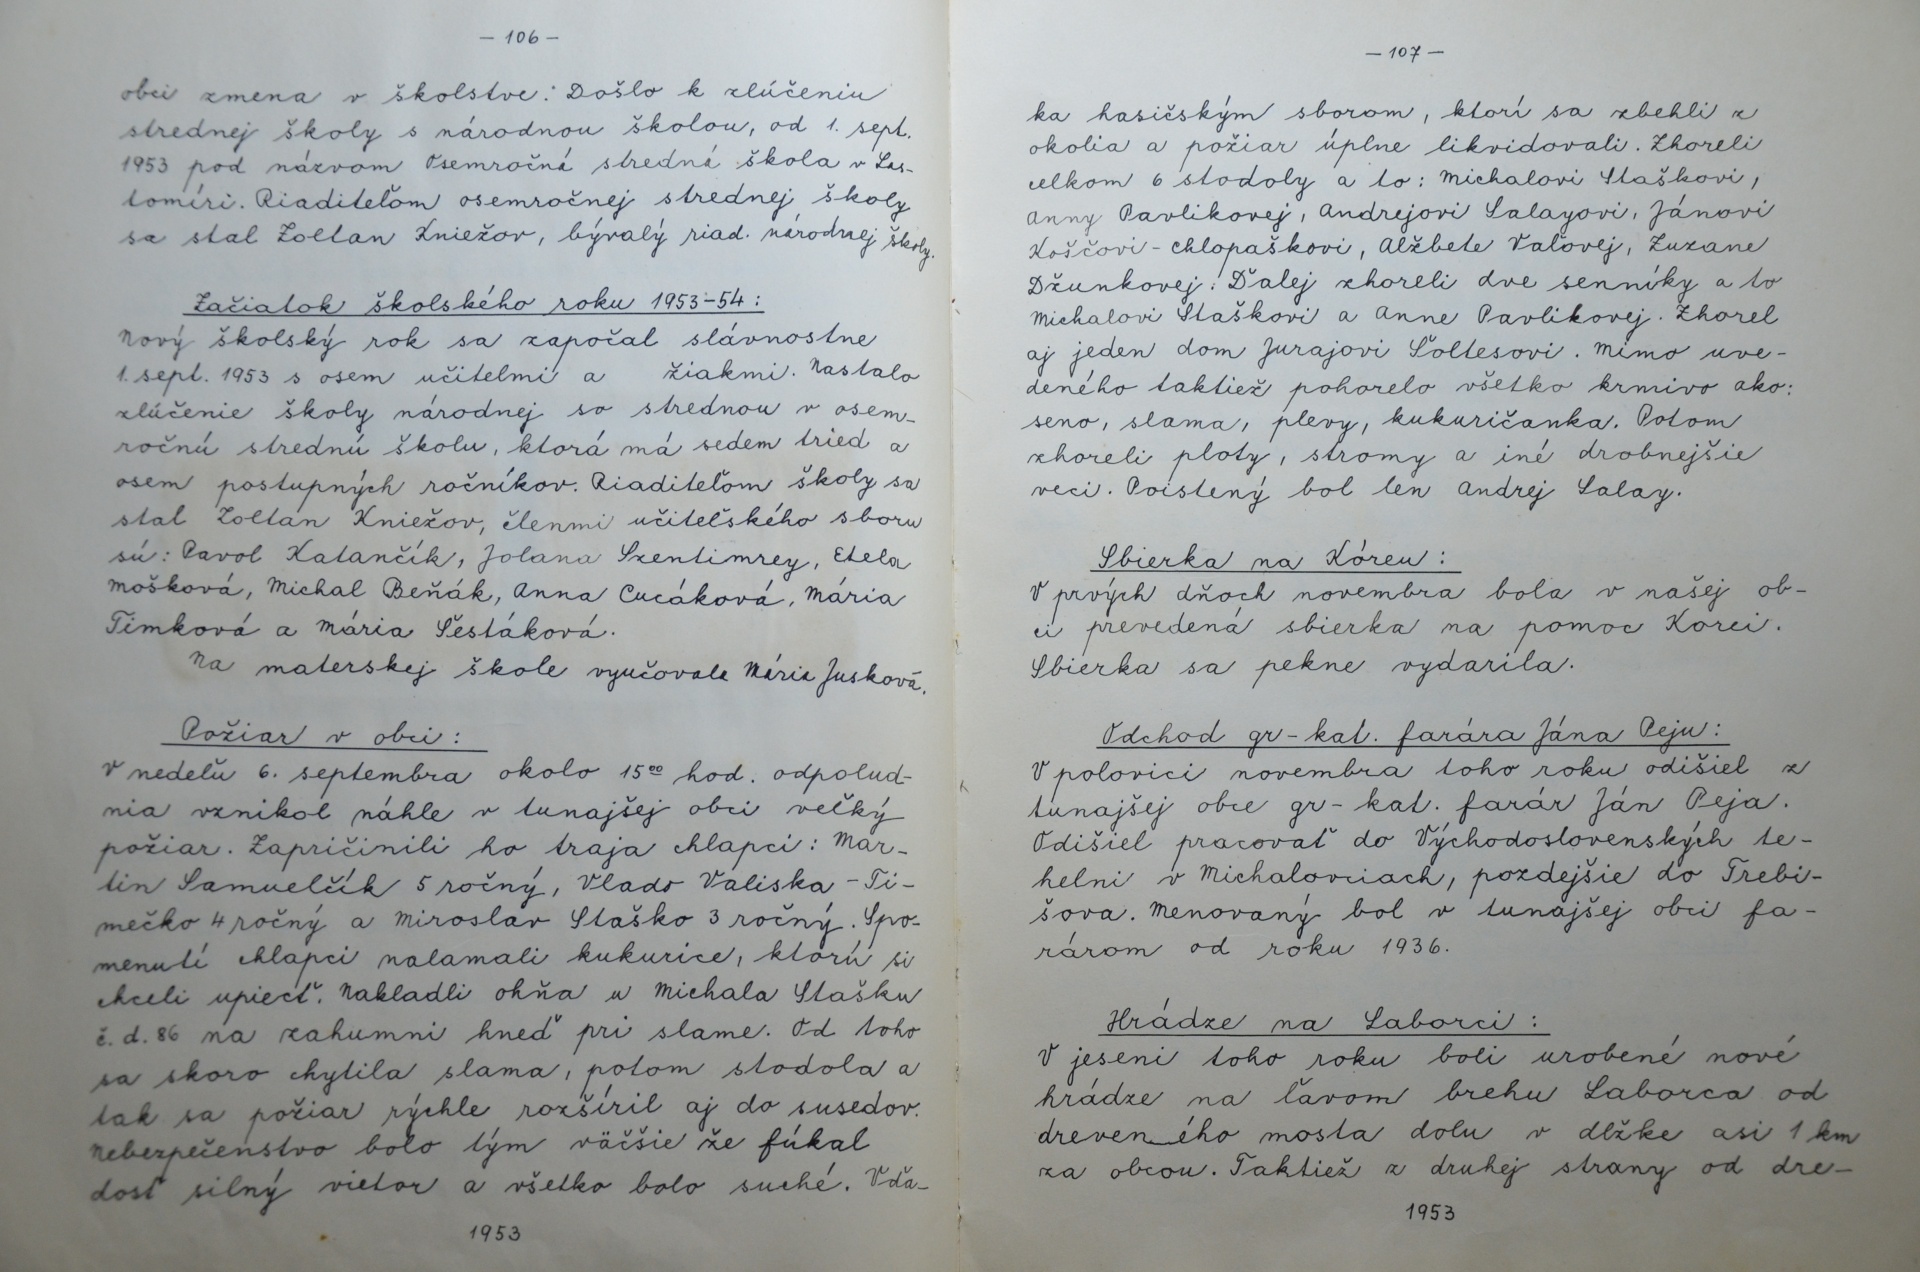 – 106 –
obci zmena v školstve: Došlo k zlúčeniu
strednej školy s národnou školou, od 1. sept.
1953 pod názvom Osemročná stredná škola v Las-
tomíri. Riaditeľom osemročnej strednej školy
sa stal Zoltan Kniežov, bývalý riad. národnej školy.
Začiatok školského roku 1953-54:
Nový školský rok sa započal slávnostne
1. sept. 1953 s osem učitelmi a žiakmi. Nastalo
zlúčenie školy národnej so strednou v osem-
ročnú strednú školu, ktorá má sedem tried a
osem postupných ročníkov. Riaditeľom školy sa
stal Zoltan Kniežov, členmi učiteľského sboru
sú: Pavol Katančík, Jolana Szentimrey, Etela
Mošková, Michal Beňák, Anna Cucáková, Mária
Timková a Mária Šestáková.
Na materskej škole vyučovala Mária Jusková.
Požiar v obci:
V nedeľu 6. septembra okolo 15⁰⁰ hod. odpolud-
nia vznikol náhle v tunajšej obci veľký
požiar. Zapričinili ho traja chlapci: Mar-
tin Samuelčík 5 ročný, Vlado Valiska - Ti-
mečko 4 ročný a Miroslav Staško 3 ročný. Spo-
menutí chlapci nalamali kukurice, ktorú si
chceli upiecť. Nakladli ohňa u Michala Stašku
č. d. 86 na zahumni hneď pri slame. Od toho
sa skoro chytila slama, potom stodola a
tak sa požiar rýchle rozšíril aj do susedov.
Nebezpečenstvo bolo tým väčšie že fúkal
dosť silný vietor a všetko bolo suché. Vďa-
1953
– 107 –
ka hasičským sborom, ktorí sa zbehli z
okolia a požiar úplne likvidovali. Zhoreli
celkom 6 stodoly a to: Michalovi Staškovi,
Anny Pavlikovej, Andrejovi Lalayovi, Jánovi
Koščovi - Chlopaškovi, Alžbete Vaľovej, Zuzane
Džunkovej. Ďalej zhoreli dve senníky a to
Michalovi Staškovi a Anne Pavlikovej. Zhorel
aj jeden dom Jurajovi Šoltesovi. Mimo uve-
deného taktiež pohorelo všetko krmivo ako:
seno, slama, plevy, kukuričanka. Potom
zhoreli ploty, stromy a iné drobnejšie
veci. Poistený bol len Andrej Lalay.
Sbierka na Kóreu:
V prvých dňoch novembra bola v našej ob-
ci prevedená sbierka na pomoc Korei.
Sbierka sa pekne vydarila.
Odchod gr-kat. farára Jána Peju:
V polovici novembra toho roku odišiel z
tunajšej obce gr-kat. farár Ján Peja.
Odišiel pracovať do Východoslovenských te-
helni v Michalovciach, pozdejšie do Trebi-
šova. Menovaný bol v tunajšej obci fa-
rárom od roku 1936.
Hrádze na Laborci:
V jeseni toho roku boli urobené nové
hrádze na ľavom brehu Laborca od
drevenného mosta dolu v dĺžke asi 1 km
za obcou. Taktiež z druhej strany od dre-
1953